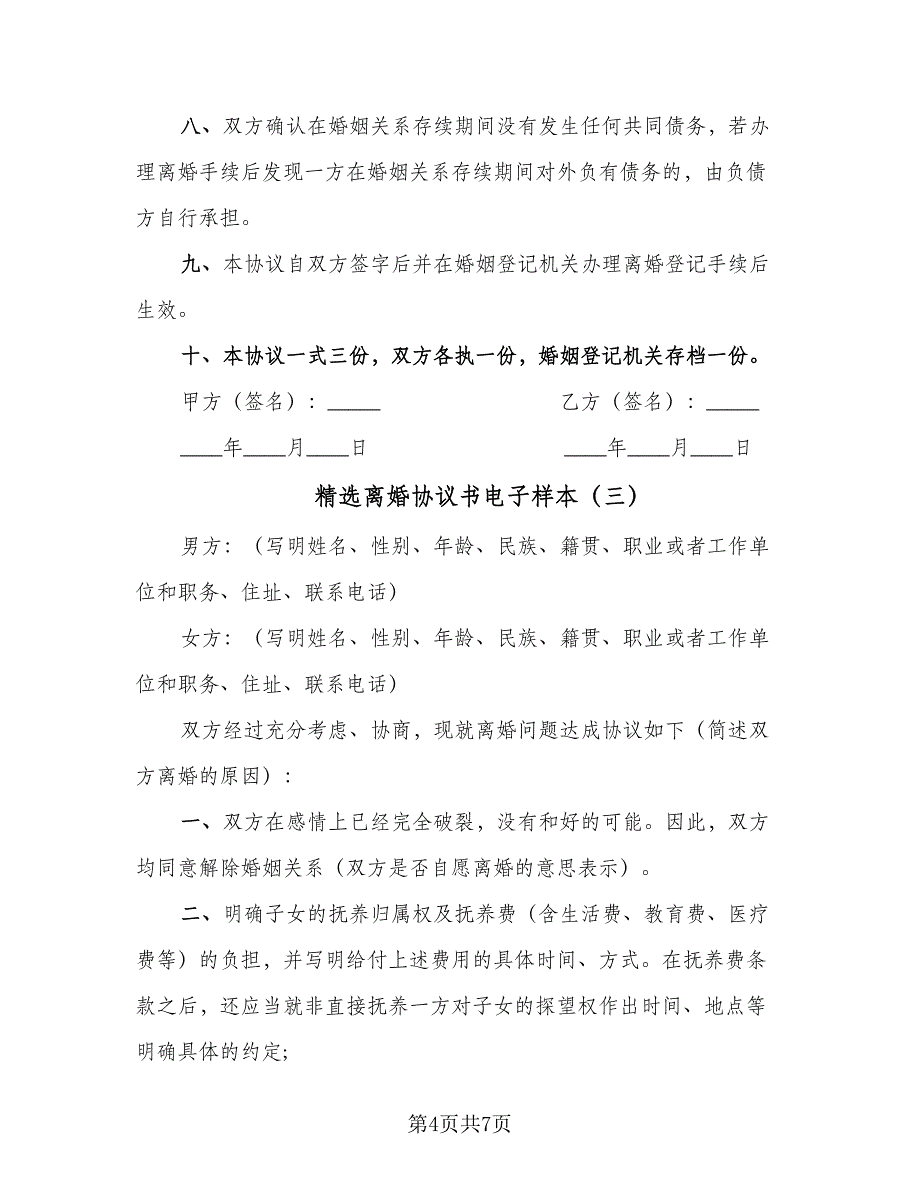 八、双方确认在婚姻关系存续期间没有发生任何共同债务，若办
理离婚手续后发现一方在婚姻关系存续期间对外负有债务的，由负债
方自行承担。
九、本协议自双方签字后并在婚姻登记机关办理离婚登记手续后
生效。
十、本协议一式三份，双方各执一份，婚姻登记机关存档一份。
甲方（签名）：_____ 乙方（签名）：_____
____年____月____日 ____年____月____日
精选离婚协议书电子样本（三）
男方：（写明姓名、性别、年龄、民族、籍贯、职业或者工作单
位和职务、住址、联系电话）
女方：（写明姓名、性别、年龄、民族、籍贯、职业或者工作单
位和职务、住址、联系电话）
双方经过充分考虑、协商，现就离婚问题达成协议如下（简述双
方离婚的原因）：
一、双方在感情上已经完全破裂，没有和好的可能。因此，双方
均同意解除婚姻关系（双方是否自愿离婚的意思表示）。
二、明确子女的抚养归属权及抚养费（含生活费、教育费、医疗
费等）的负担，并写明给付上述费用的具体时间、方式。在抚养费条
款之后，还应当就非直接抚养一方对子女的探望权作出时间、地点等
明确具体的约定;
第4页共7页